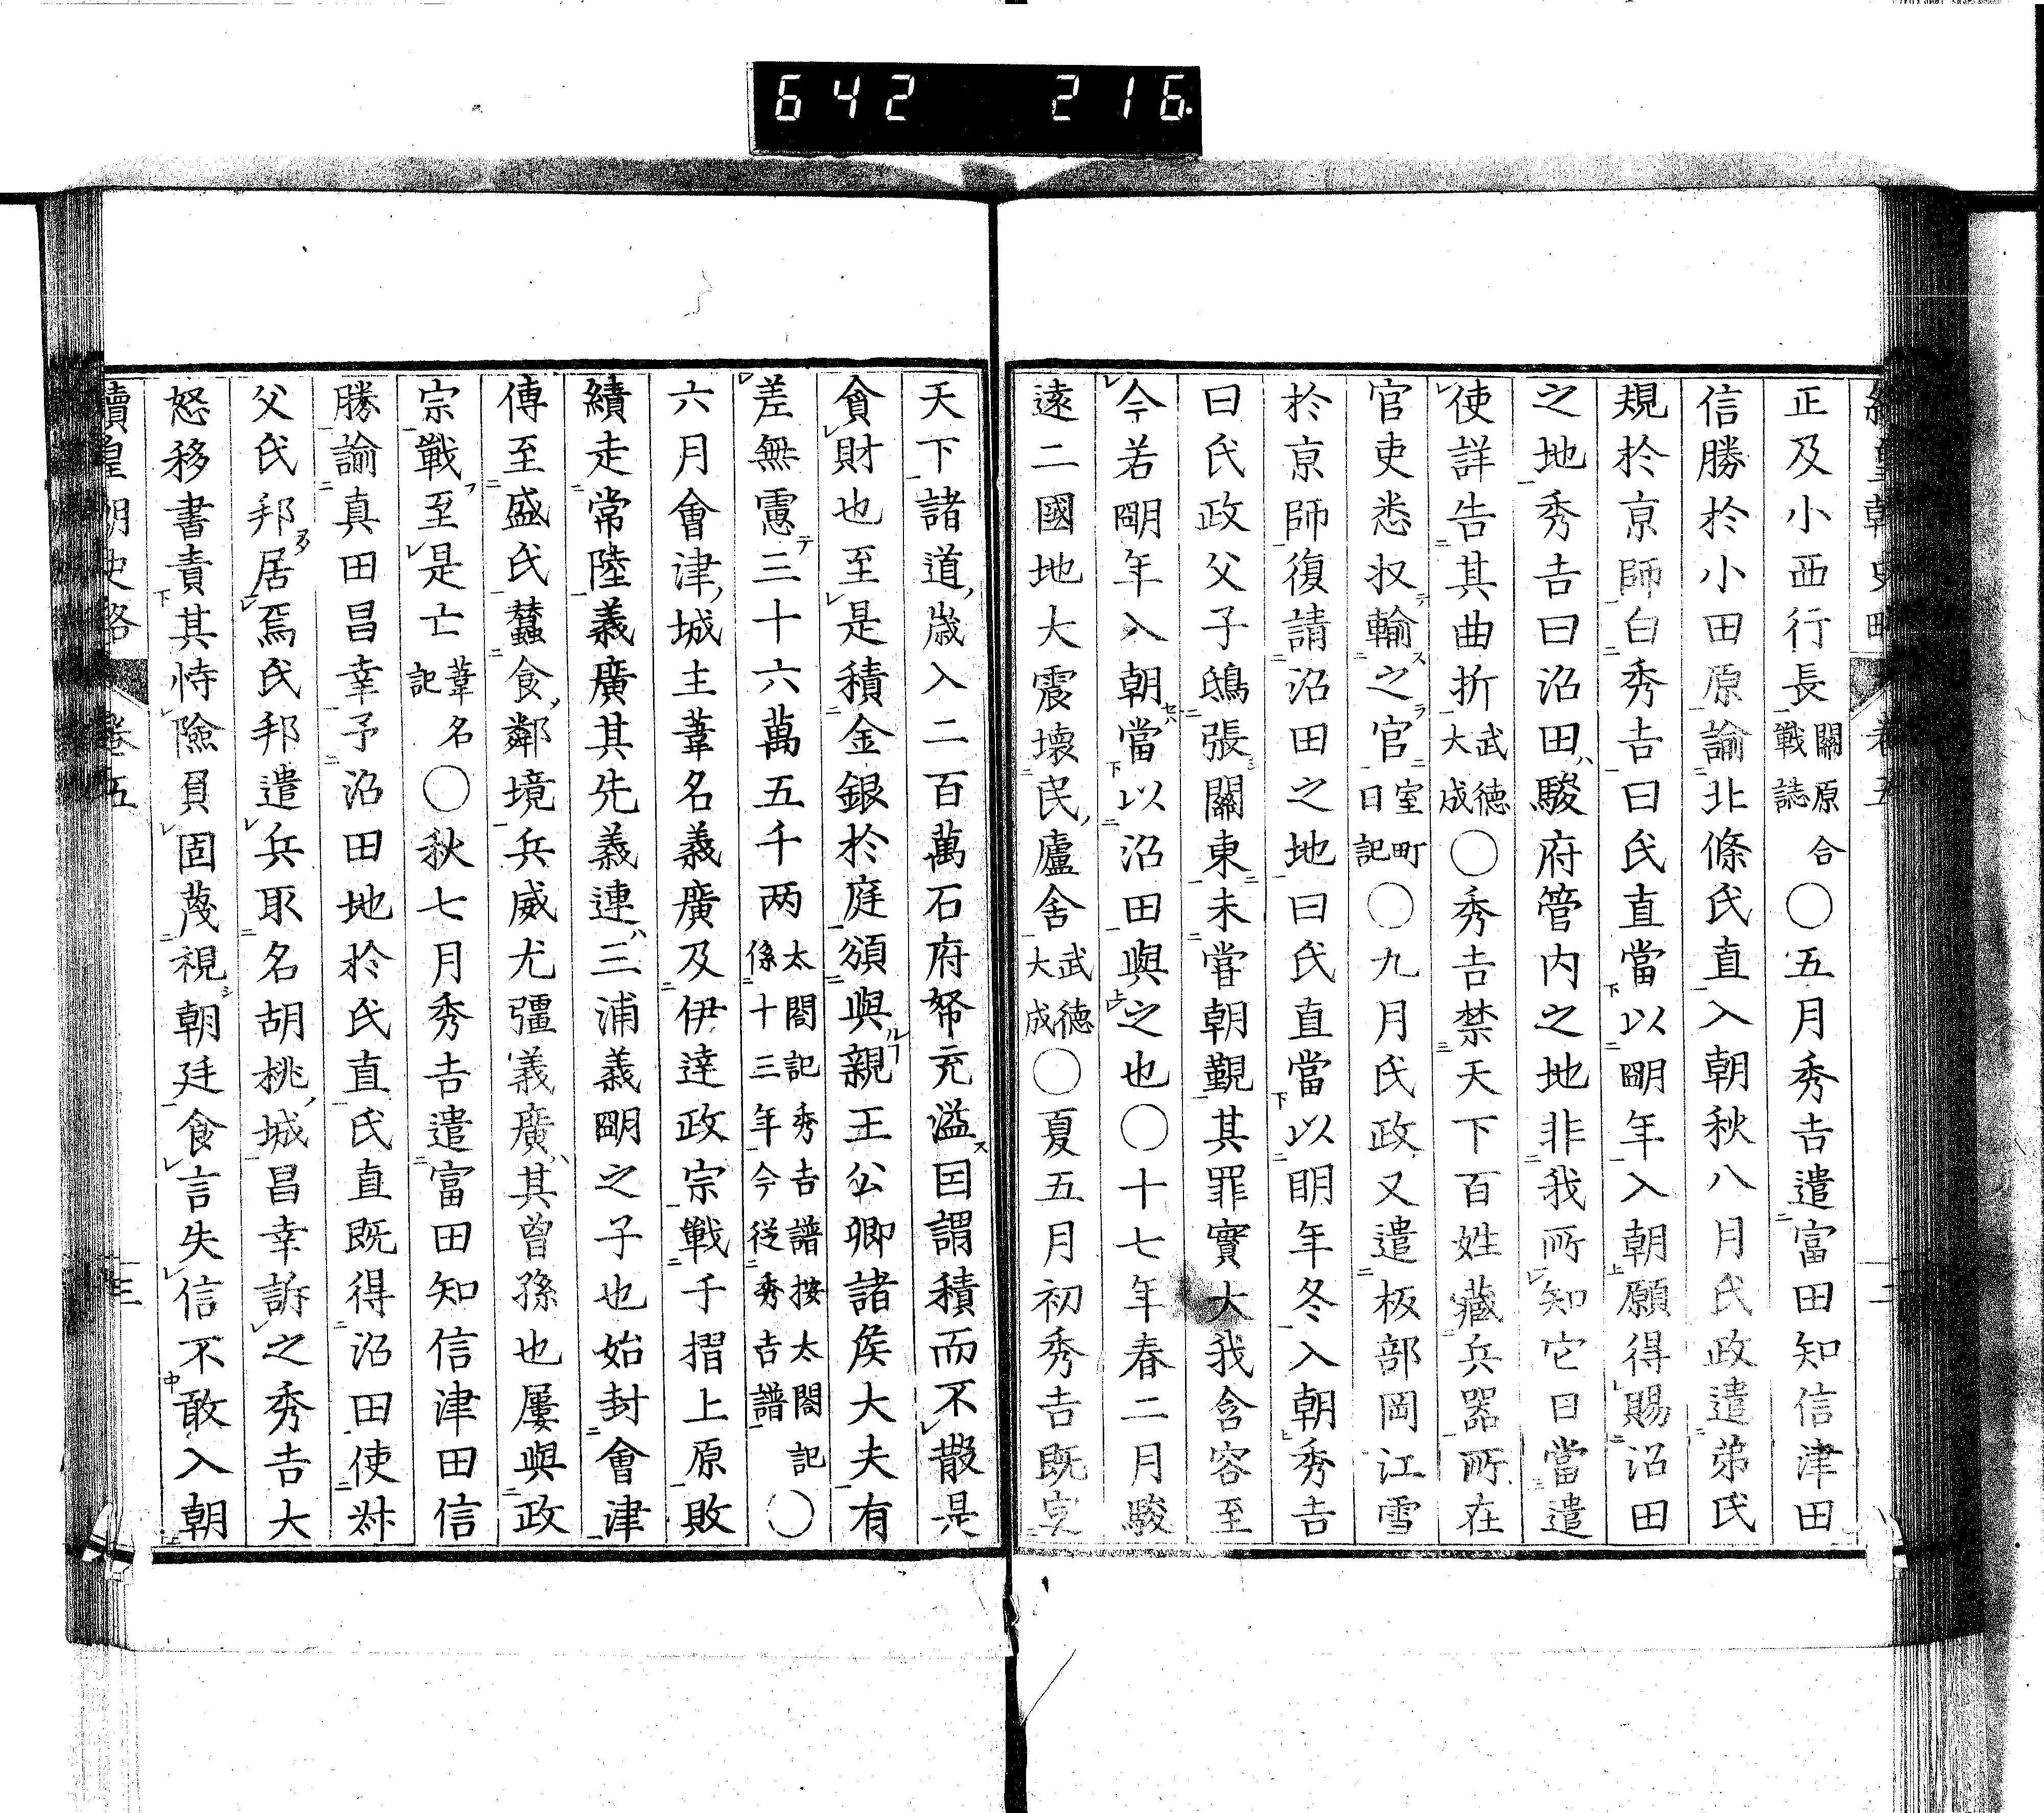 642 216
正及小西行長關原合戰誌〇五月秀吉遣富田知信津田
信勝於小田原諭北條氏直入朝秋八月氏政遣弟氏
規於京師白秀吉曰氏直當以明年入朝願得賜沼田
之地秀吉曰沼田駿府管内之地非我所知它日當遣
使詳告其曲折武德大成〇秀吉禁天下百姓藏兵器所在
官吏悉收輸之官室町日記〇九月氏政又遣板部岡江雪
於京師復請沼田之地曰氏直當以明年冬入朝秀吉
曰氏政父子鴟張關東未嘗朝覲其罪實大我含容至
今若明年入朝當以沼田與之也〇十七年春二月駿
遠二國地大震壞民廬舍武德大成〇夏五月初秀吉既定
天下諸道歳入二百萬石府帑充溢因謂積而不散是
貪財也至是積金銀於庭頒與親王公卿諸侯大夫有
差無慮三十六萬五千两太閤記秀吉譜按太閤記係十三年今從秀吉譜〇
六月會津城主葦名義廣及伊達政宗戰于摺上原敗
績走常陸義廣其先義連三浦義明之子也始封會津
傳至盛氏蠶食鄰境兵威尤彊義廣其曾孫也屢與政
宗戰至是亡葦名記〇秋七月秀吉遣富田知信津田信
勝諭真田昌幸予沼田地於氏直氏直既得沼田使叔
父氏邦居焉氏邦遣兵取名胡桃城昌幸訴之秀吉大
怒移書責其恃險負固蔑視朝廷食言失信不敢入朝
續皇朝史略 卷五 三